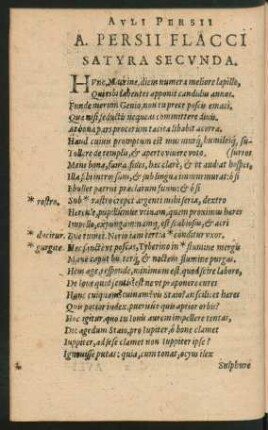 AVLI PERSII
A. PERSII FLACCI
SATYRA SECVNDA.
HVnc, Macrine, diem numera meliore lapillo,
Qui tibi labentes apponit candidus annos.
Funde merum Genio, non tu prece poscis emaci,
Quæ nisi seductis nequeas committere diuis.
At bona pars procerum tacita libabit acerra,
Haud cuiuis promptum est murmurq́, humilesq́, su-
Tollere de templis, & aperto viuere voto. (surros
Mens bona, fama, fides, hæc clarè, & vt audiat hospes,
Illa sibi introrsum, & sub lingua immurmurat: ô si
Ebullet patrui præclarum funus: & ô si
* rastro. Sub * rastro crepet argenti mihi seria, dextro
Hercule, pupillumue vtinam, quem proximus hæres
Impello, expungam: namq́ est scabiosus, & acri
* ducitur. Bile tumet. Nerio iam tertia * conditur vxor.
* gurgite. Hæc sanctè vt poscas, Tyberino in * flumine mergis
Mane caput bis, terq́, & noctem flumine purgas.
Heus age, responde, minimum est quod scire laboro,
De Ioue quid sentis? est ne vt præponere cures
Hunc cuiquam? cuinam? vis Staio? an scilicet hæres
Quis potior iudex, puerisue quis aptior orbis?
Hoc igitur, quo tu Iouis aurem impellere tentas,
Dic agedum Staio, prô Iupiter, ô bone clamet
Iuppiter, ad sese clamet non Iuppiter ipse?
Ignouisse putas: quia, cum tonat, ocyus ilex
Sulphure